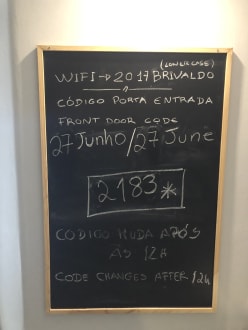 (LOWER CASE)
WIFI → 2017BRIVALDO
CÓDIGO PORTA ENTRADA
FRONT DOOR CODE
27 Junho / 27 June
2183*
CÓDIGO MUDA APÓS
ÀS 12H
CODE CHANGES AFTER 12H